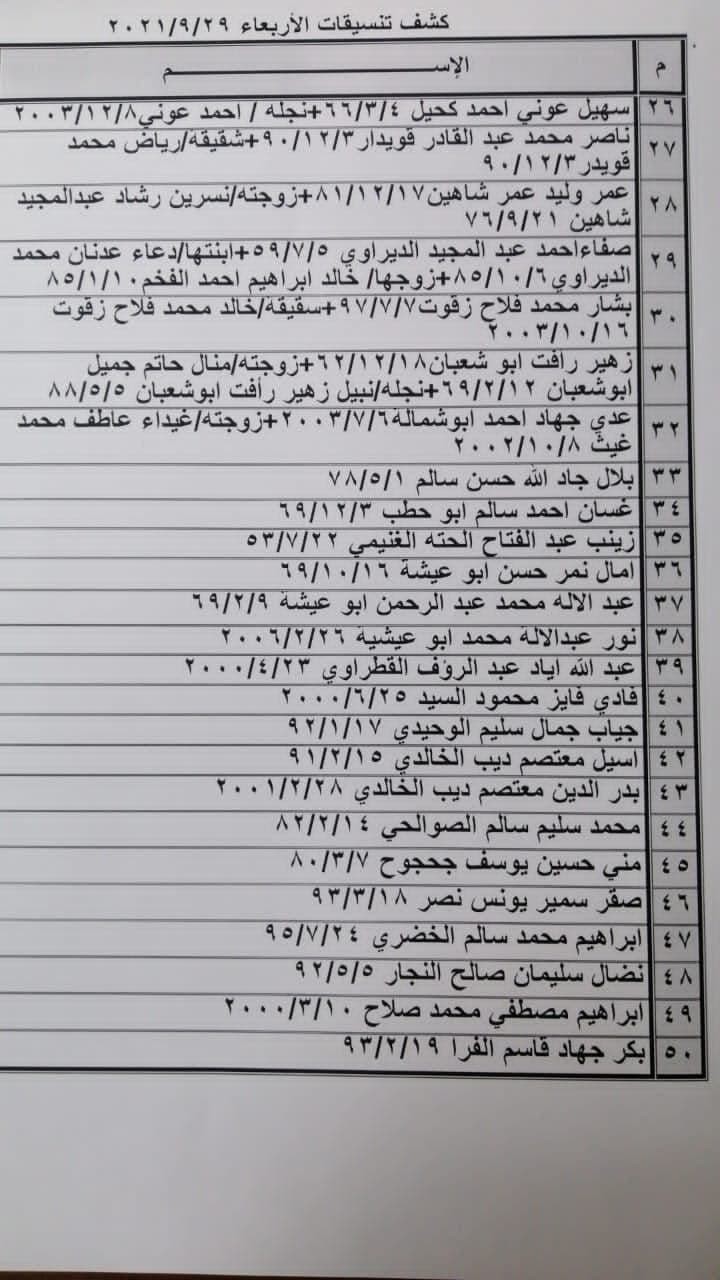 كشف تنسيقات الأربعاء ٢٠٢١/٩/٢٩
م الإســـــــــــــــم
٢٦ سهيل عوني احمد كحيل ٦٦/٣/٤+نجله / احمد عوني٢٠٠٣/١٢/٨
٢٧ ناصر محمد عبد القادر قويدار٩٠/١٢/٣+شقيقة/رياض محمد
قويدر٩٠/١٢/٣
٢٨ عمر وليد عمر شاهين٨١/١٢/١٧+زوجته/نسرين رشاد عبدالمجيد
شاهين ٧٦/٩/٢١
٢٩ صفاءاحمد عبد المجيد الديراوي ٥٩/٧/٥+ابنتها/دعاء عدنان محمد
الديراوي٨٥/١٠/٦+زوجها/ خالد ابراهيم احمد الفخم٨٥/١/١٠
٣٠ بشار محمد فلاح زقوت٩٧/٧/٧+سقيقة/خالد محمد فلاح زقوت
٢٠٠٣/١٠/١٦
٣١ زهير رافت ابو شعبان٦٢/١٢/١٨+زوجته/منال حاتم جميل
ابوشعبان ٦٩/٢/١٢+نجله/نبيل زهير رأفت ابوشعبان ٨٨/٥/٥
٣٢ عدي جهاد احمد ابوشمالة٢٠٠٣/٧/٦+زوجته/غيداء عاطف محمد
غيث ٢٠٠٢/١٠/٨
٣٣ بلال جاد الله حسن سالم ٧٨/٥/١
٣٤ غسان احمد سالم ابو حطب ٦٩/١٢/٣
٣٥ زينب عبد الفتاح الحته الغنيمي ٥٣/٧/٢٢
٣٦ امال نمر حسن ابو عيشة ٦٩/١٠/١٦
٣٧ عبد الاله محمد عبد الرحمن ابو عيشة ٦٩/٢/٩
٣٨ نور عبدالالة محمد ابو عيشية ٢٠٠٦/٢/٢٦
٣٩ عبد الله اياد عبد الرؤف القطراوي ٢٠٠٠/٤/٢٣
٤٠ فادي فايز محمود السيد ٢٠٠٠/٦/٢٥
٤١ جياب جمال سليم الوحيدي ٩٢/١/١٧
٤٢ اسيل معتصم ديب الخالدي ٩١/٢/١٥
٤٣ بدر الدين معتصم ديب الخالدي ٢٠٠١/٢/٢٨
٤٤ محمد سليم سالم الصوالحي ٨٢/٢/١٤
٤٥ مني حسين يوسف جحجوح ٨٠/٣/٧
٤٦ صقر سمير يونس نصر ٩٣/٣/١٨
٤٧ ابراهيم محمد سالم الخضري ٩٥/٧/٢٤
٤٨ نضال سليمان صالح النجار ٩٢/٥/٥
٤٩ ابراهيم مصطفي محمد صلاح ٢٠٠٠/٣/١٠
٥٠ بكر جهاد قاسم الفرا ٩٣/٢/١٩